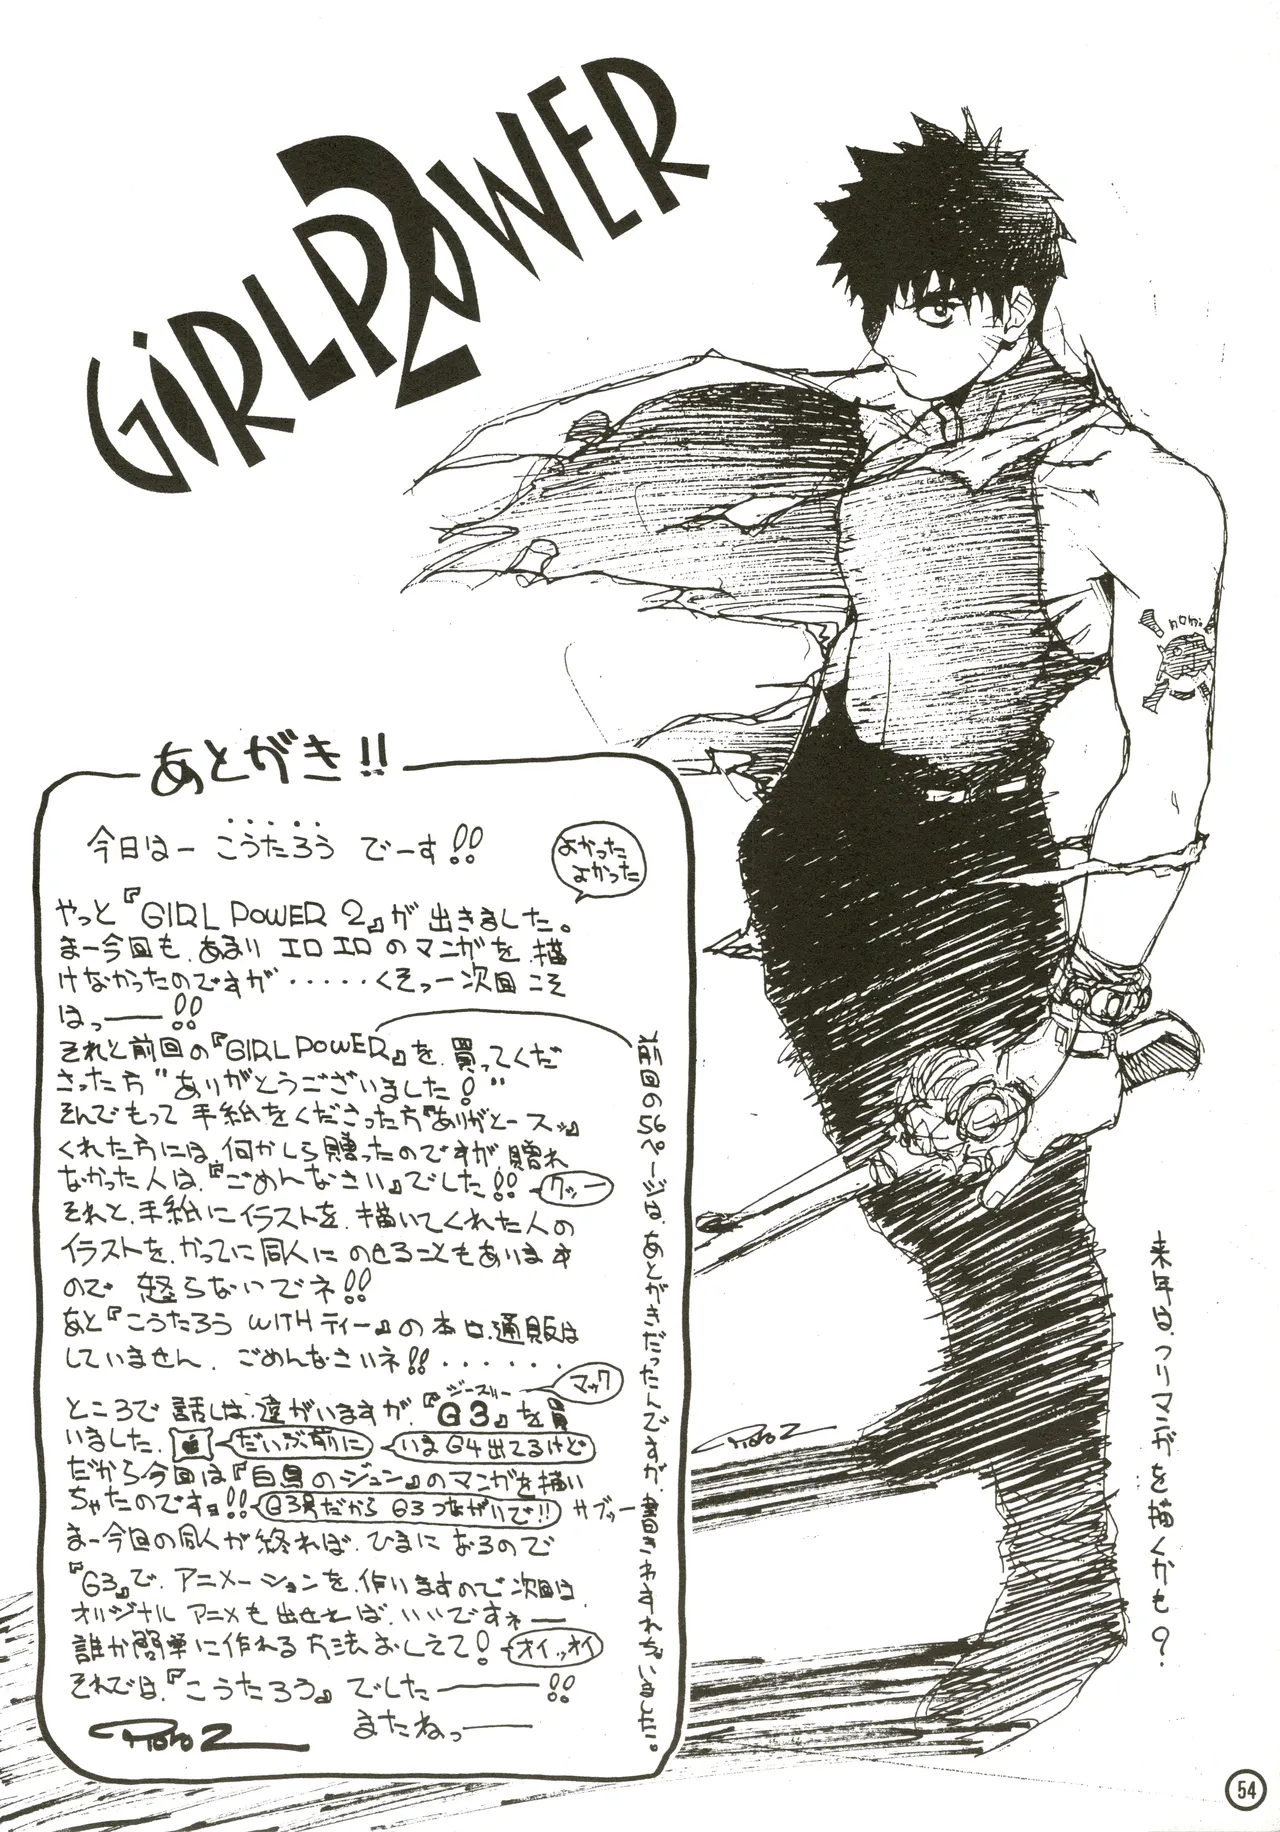 GiRLPOWER
2
あとがき!!
今日はー こうたろう でーす!!
よかった
よかった
やっと『GIRL POWER 2』が出きました。
まー今回も、あまり エロエロ のマンガを、描
けなかったのですが・・・・・くそっー次回こそ
はっ――!!
それと前回の『GIRL POWER』を、買ってくだ
さった方"ありがとうございました!"
そんでもって 手紙をくださった方『ありがとースッ』
くれた方には、何かしら贈ったのですが、贈れ
なかった人は、『ごめんなさい』でした!!
クッー
それと、手紙にイラストを、描いてくれた人の
イラストを、かってに同人に のせることもあります
ので 怒らないでネ!!
あと『こうたろう WITH ティー』の本は、通販は
していません、ごめんなさいネ!!・・・・・・
マック
ジースリー
ところで 話しは、違がいますが、『G3』を買
いました。
だいぶ前に
いまG4出てるけど
だから今回は『白鳥のジュン』のマンガを描い
ちゃたのですョ!!
G3号だから G3つながいで!!
サブッー
まー今回の同人が終れば、ひまになるので
『G3』で、アニメーションを、作いますので次回は、
オリジナル アニメも出せとば、いいですネ――
誰か簡単に作れる方法おしえて!
オイッオイ
それでは、『こうたろう』でした――!!
またねっ――
前回の56ページは、あとがきだったんですが、書きわすれちゃいました。
来年は、フリマンガを描くかも?
nomi
54